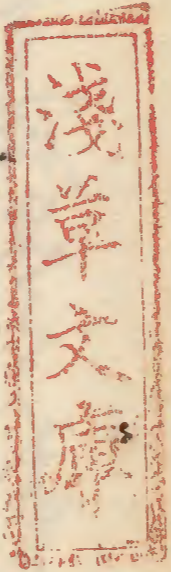 淺草文庫